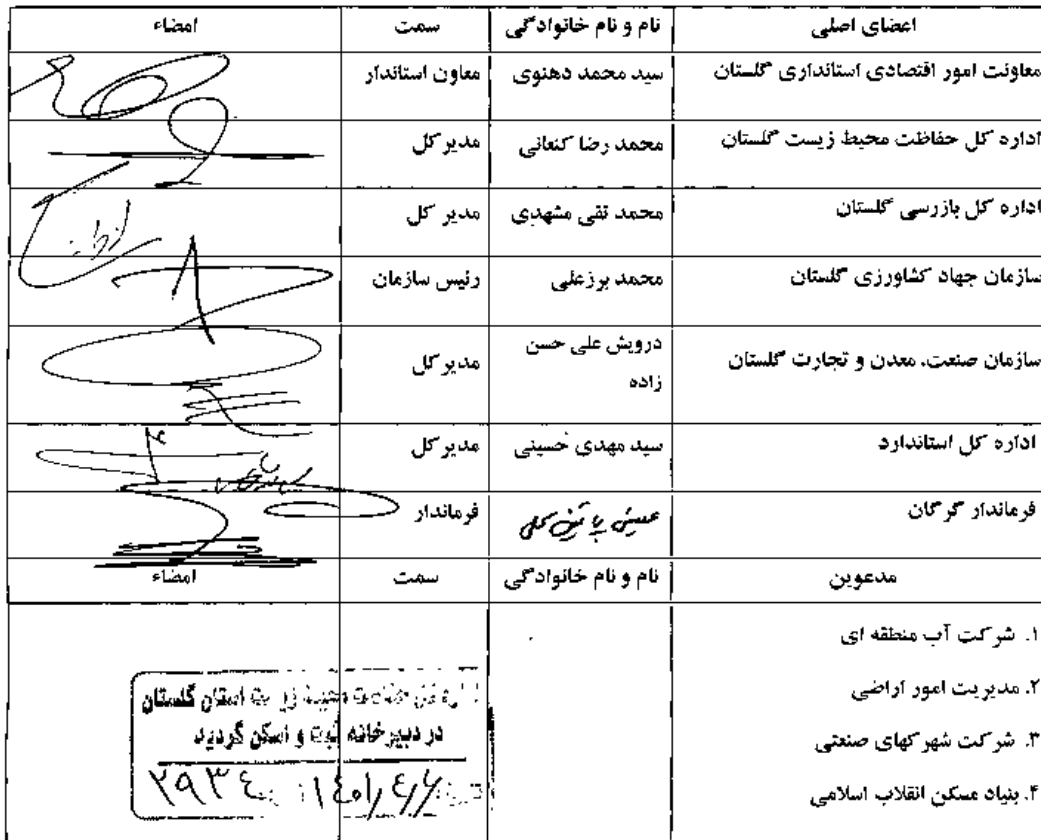 اعضای اصلی نام و نام خانوادگی سمت امضاء
معاونت امور اقتصادی استانداری گلستان سید محمد دهنوی معاون استاندار
اداره کل حفاظت محیط زیست گلستان محمد رضا کنعانی مدیر کل
اداره کل بازرسی گلستان محمد تقی مشهدی مدیر کل
سازمان جهاد کشاورزی گلستان محمد برزعلی رئیس سازمان
سازمان صنعت، معدن و تجارت گلستان درویش علی حسن مدیر کل
زاده
اداره کل استاندارد سید مهدی حسینی مدیر کل
فرماندار گرگان فرماندار
مدعوین نام و نام خانوادگی سمت امضاء
۱. شرکت آب منطقه ای
۲. مدیریت امور اراضی
۳. شرکت شهرکهای صنعتی
۴. بنیاد مسکن انقلاب اسلامی
زیست استان گلستان
در دبیرخانه ثبت و اسکن گردید
۱۴۰۱/۴/۶
۲۹۳۴